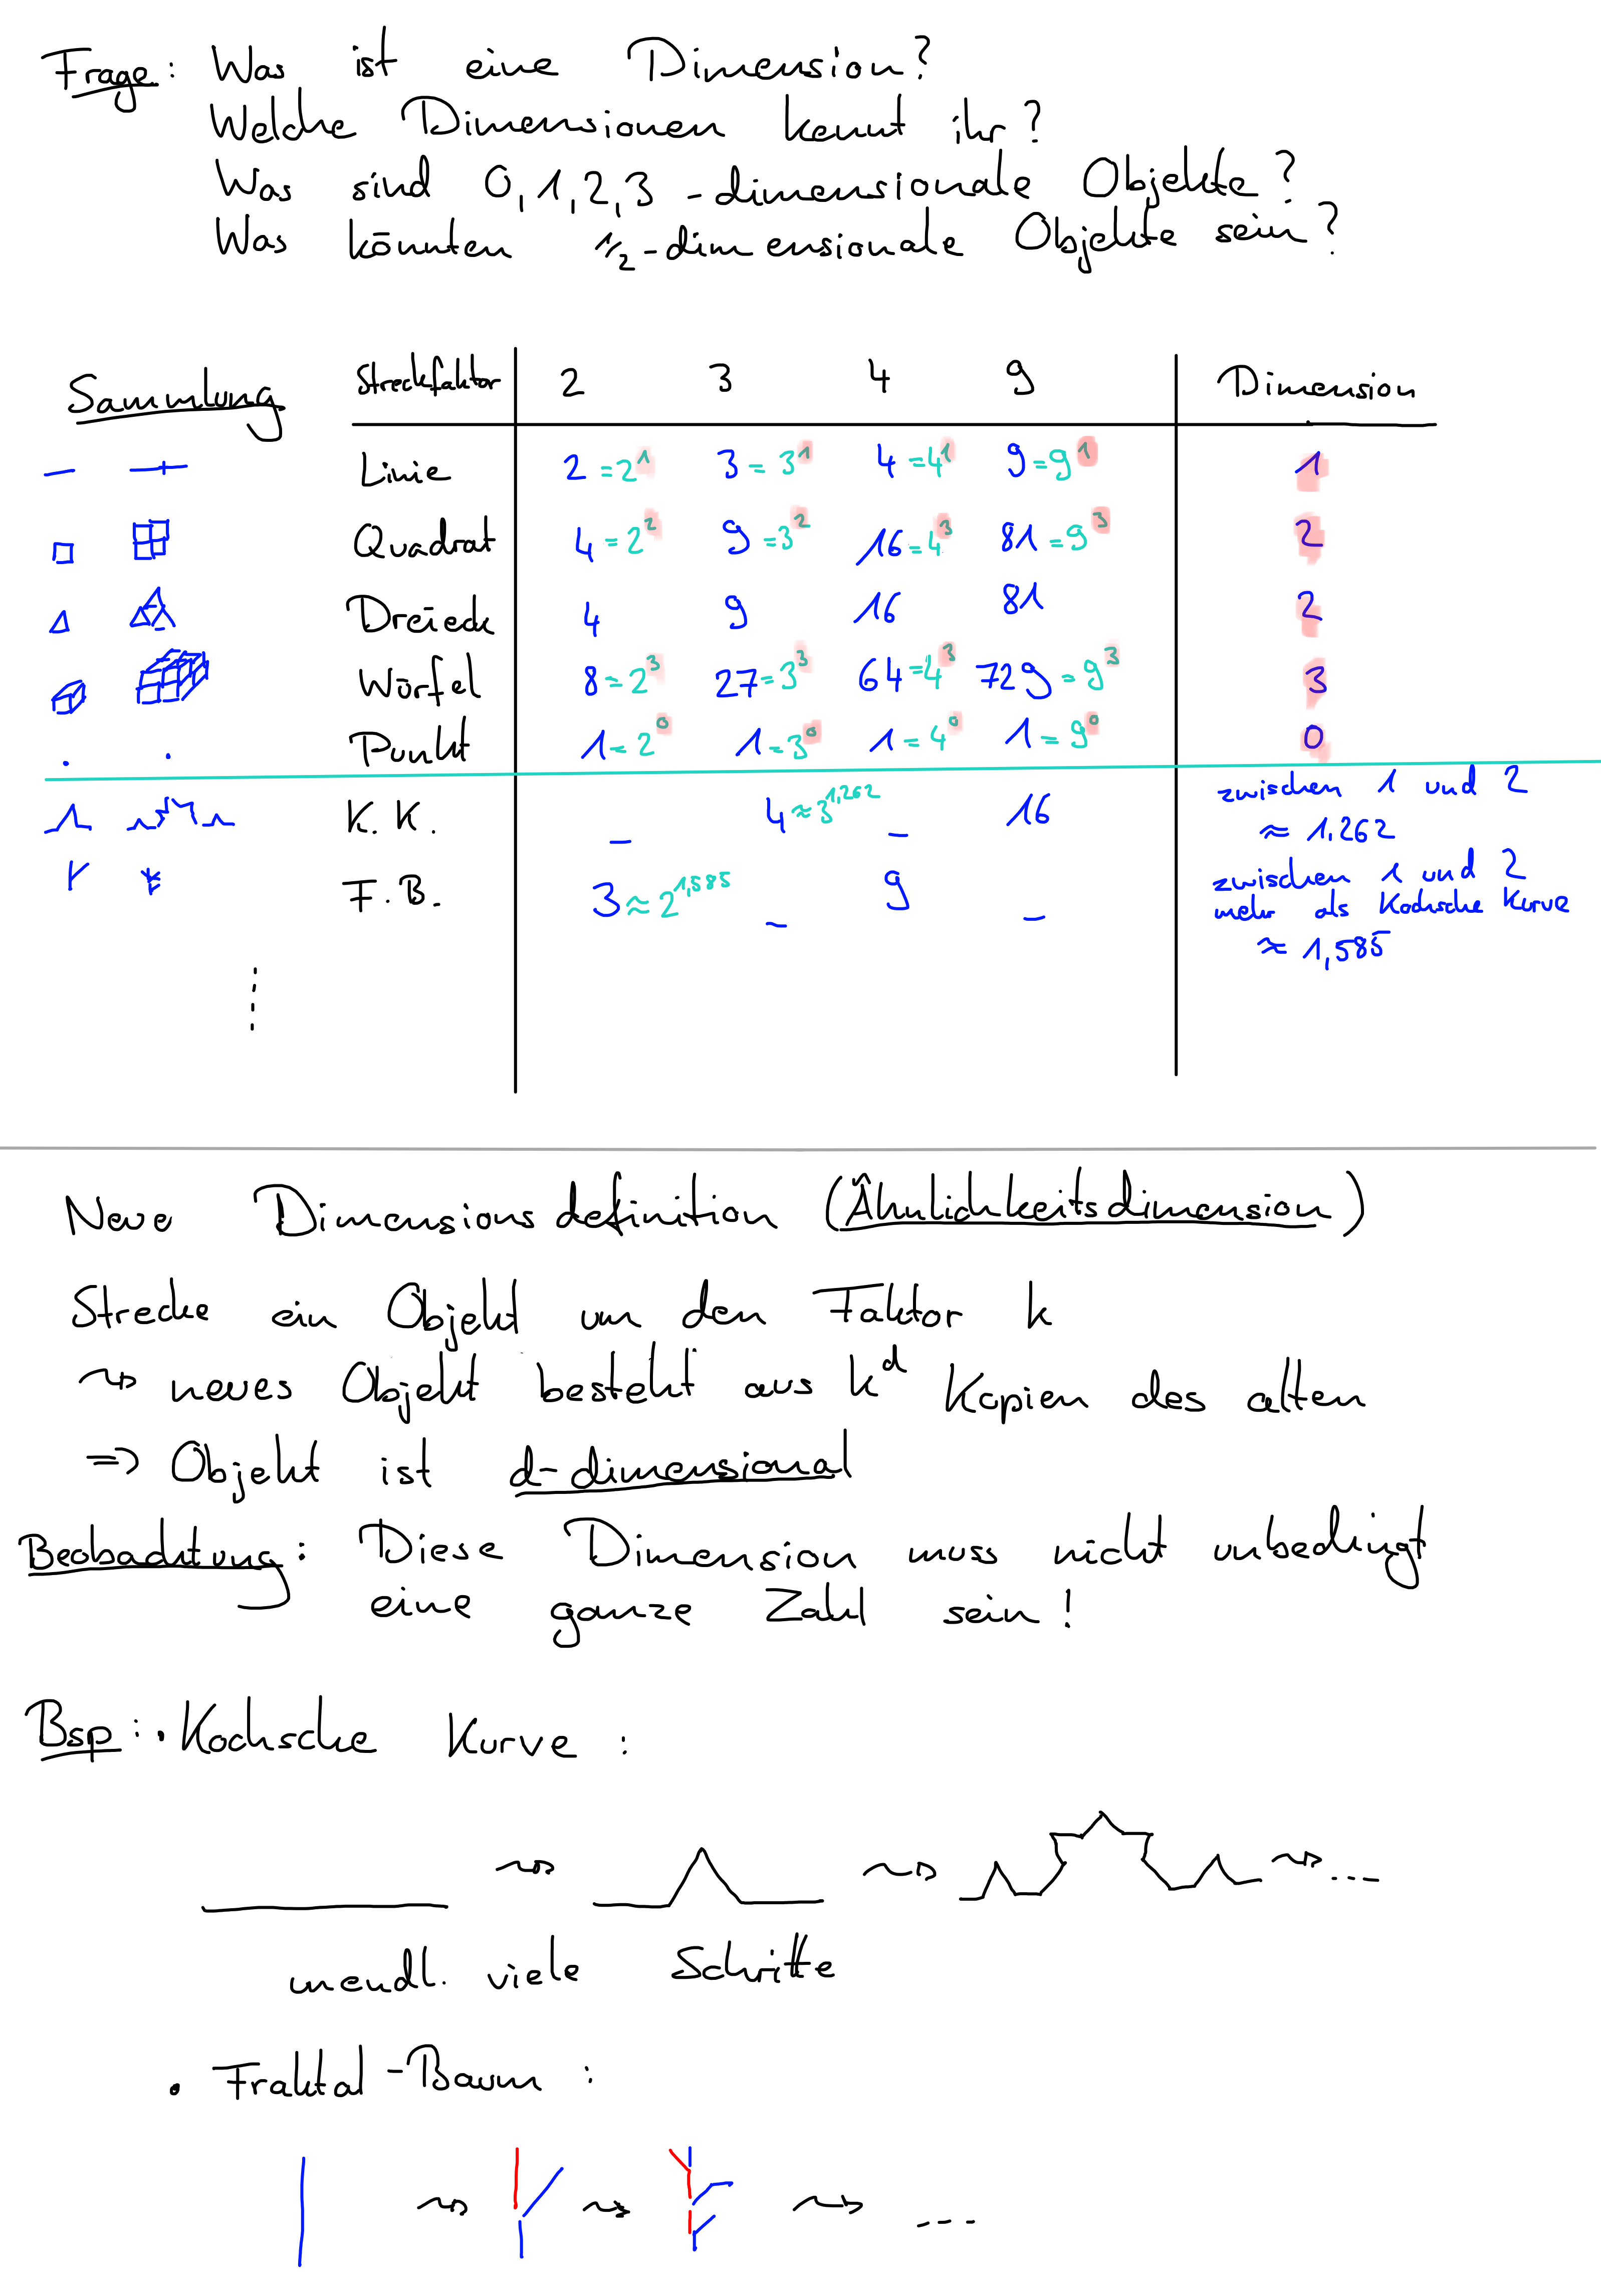 Frage: Was ist eine Dimension?
Welche Dimensionen kennt ihr?
Was sind 0,1,2,3-dimensionale Objekte?
Was könnten 1/2-dimensionale Objekte sein?
Sammlung Streckfaktor 2 3 4 9 Dimension
Linie 2 = 2^1 3 = 3^1 4 = 4^1 9 = 9^1 1
Quadrat 4 = 2^2 9 = 3^2 16 = 4^3 81 = 9^3 2
Dreieck 4 9 16 81 2
Würfel 8 = 2^3 27 = 3^3 64 = 4^3 729 = 9^3 3
Punkt 1 = 2^0 1 = 3^0 1 = 4^0 1 = 9^0 0
K.K. – 4 ≈ 3^1,262 – 16 zwischen 1 und 2
≈ 1,262
F.B. 3 ≈ 2^1,585 – 9 – zwischen 1 und 2
mehr als Kochsche Kurve
≈ 1,585
Neue Dimensionsdefinition (Ähnlichkeitsdimension)
Strecke ein Objekt um den Faktor k
⇝ neues Objekt besteht aus k^d Kopien des alten
=> Objekt ist d-dimensional
Beobachtung: Diese Dimension muss nicht unbedingt
eine ganze Zahl sein!
Bsp.: • Kochsche Kurve:
⇝ ⇝ ⇝ ....
unendl. viele Schritte
• Fraktal-Baum:
⇝ ⇝ ⇝ ....